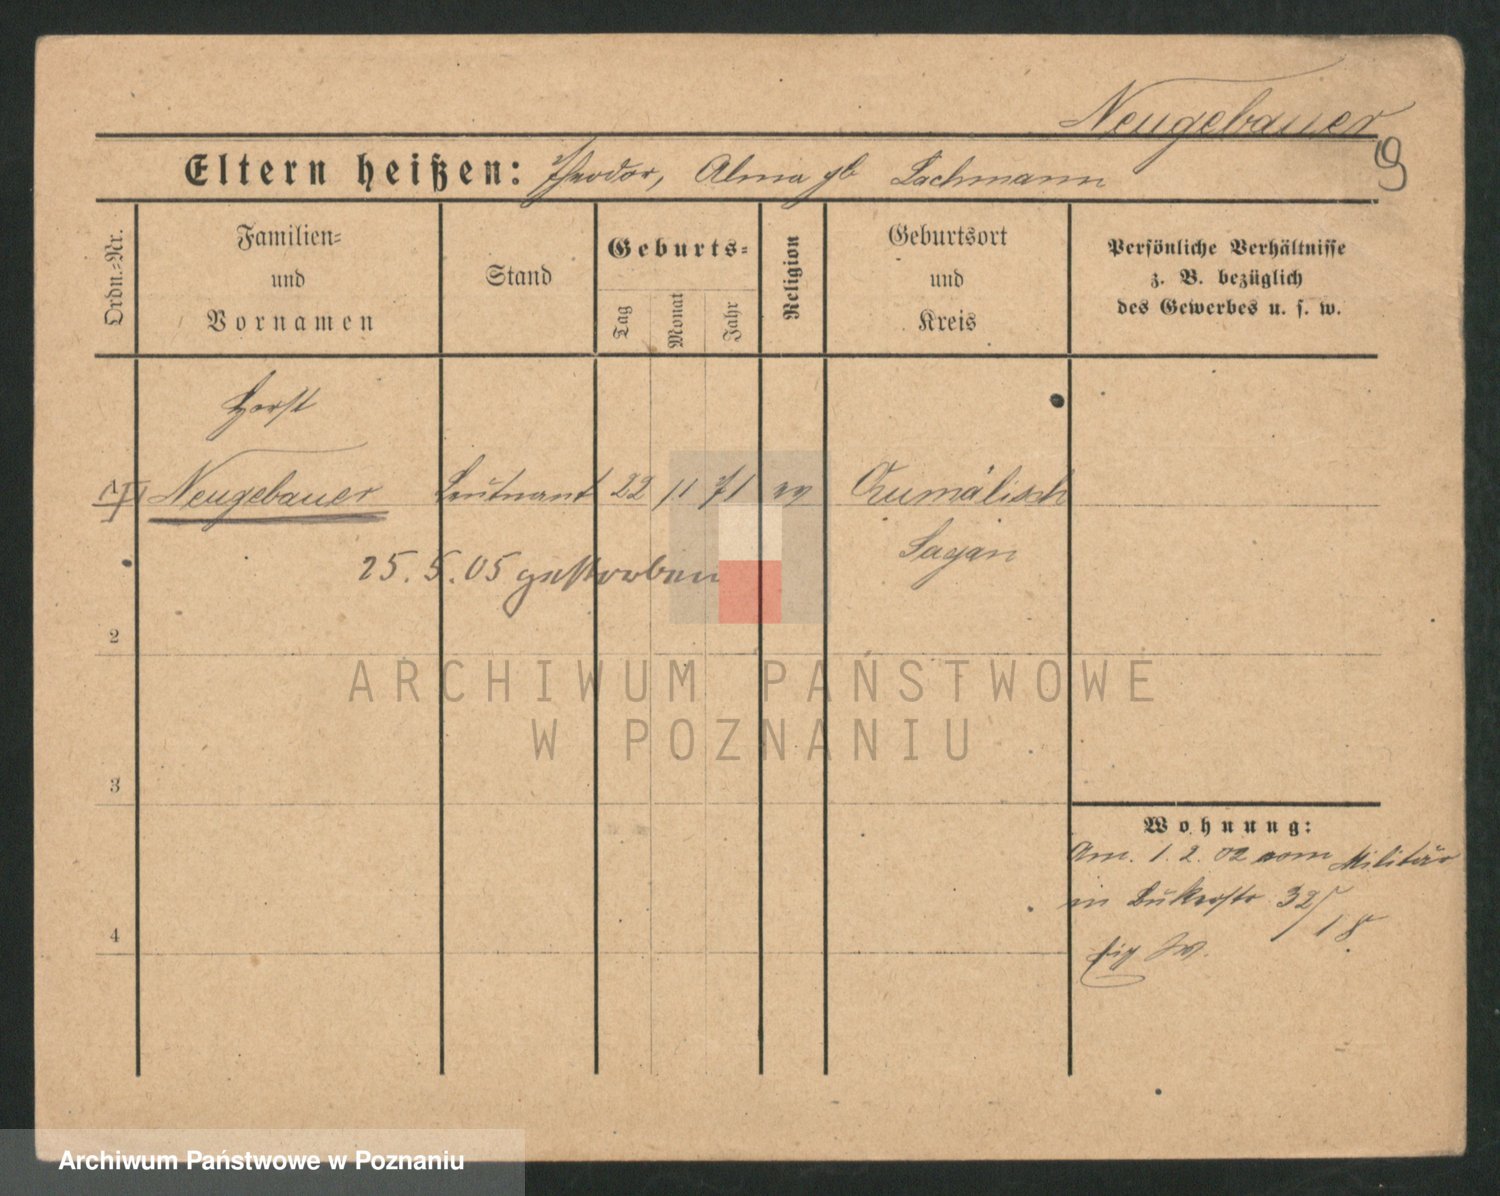 Neugebauer
9
Eltern heißen: Theodor, Alma gb Lachmann
Ordn.-Nr.
Familien-
und
Vornamen
Stand
Geburts-
Tag
Monat
Jahr
Religion
Geburtsort
und
Kreis
Persönliche Verhältnisse
z. B. bezüglich
des Gewerbes u. s. w.
Horst
Neugebauer Leutnant 22 11 71 ev
Sagan
25. 5. 05 gestorben
2
3
4
Wohnung:
Am. 1. 2. 02 vom Militär
in 32/
18
ARCHIWUM PAŃSTWOWE
W POZNANIU
Archiwum Państwowe w Poznaniu